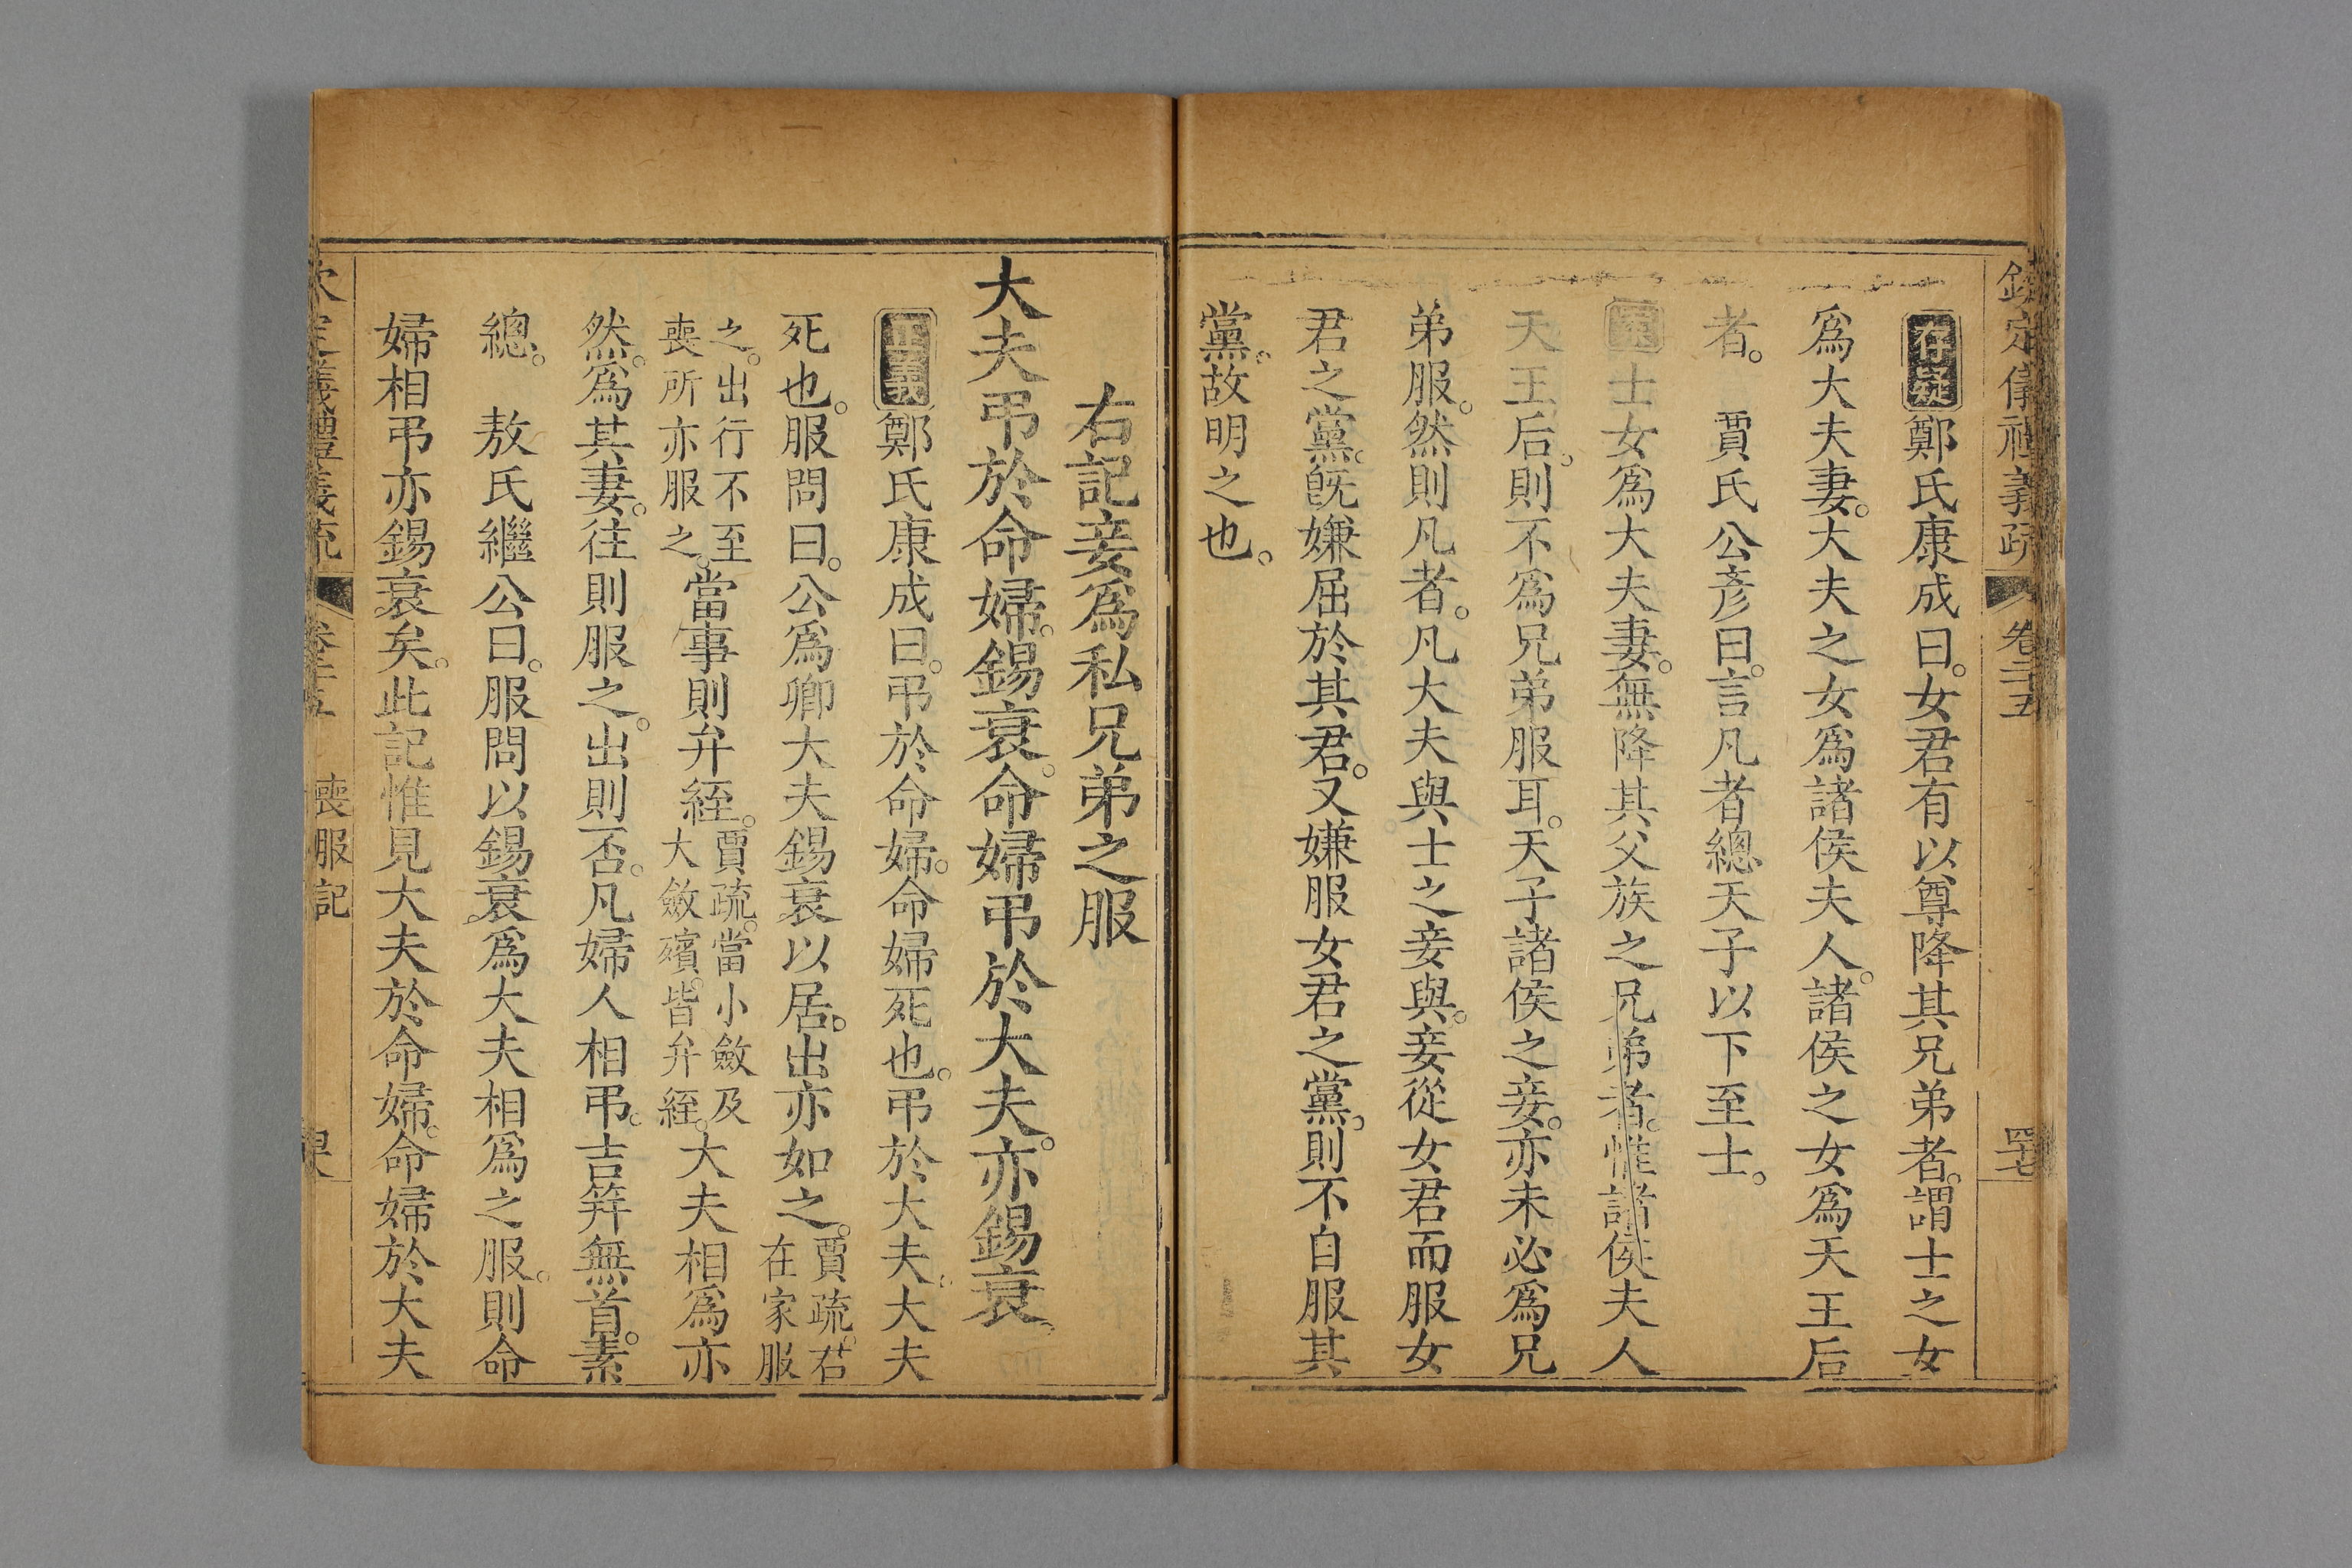 欽定儀禮義疏 卷二十五 四七
存疑鄭氏康成曰。女君有以尊降其兄弟者。謂士之女
爲大夫妻。大夫之女爲諸侯夫人。諸侯之女爲天王后
者。 賈氏公彥曰。言凡者總天子以下至士。
士女爲大夫妻。無降其父族之兄弟者。惟諸侯夫人
天王后。則不爲兄弟服耳。天子諸侯之妾。亦未必爲兄
弟服。然則凡者。凡大夫與士之妾與。妾從女君而服女
君之黨。旣嫌屈於其君。又嫌服女君之黨。則不自服其
黨。故明之也。
右記妾爲私兄弟之服
大夫弔於命婦。錫衰。命婦弔於大夫。亦錫衰。
正義鄭氏康成曰。弔於命婦。命婦死也。弔於大夫。大夫
死也。服問曰。公爲卿大夫錫衰以居。出亦如之。賈疏。君在家服
之。出行不至喪所亦服之。當事則弁絰。賈疏。當小斂及大斂殯。皆弁絰。大夫相爲亦
然。爲其妻。往則服之。出則否。凡婦人相弔。吉笄無首。素
總。 敖氏繼公曰。服問以錫衰爲大夫相爲之服。則命
婦相弔亦錫衰矣。此記惟見大夫於命婦。命婦於大夫
義禮義疏 喪服記